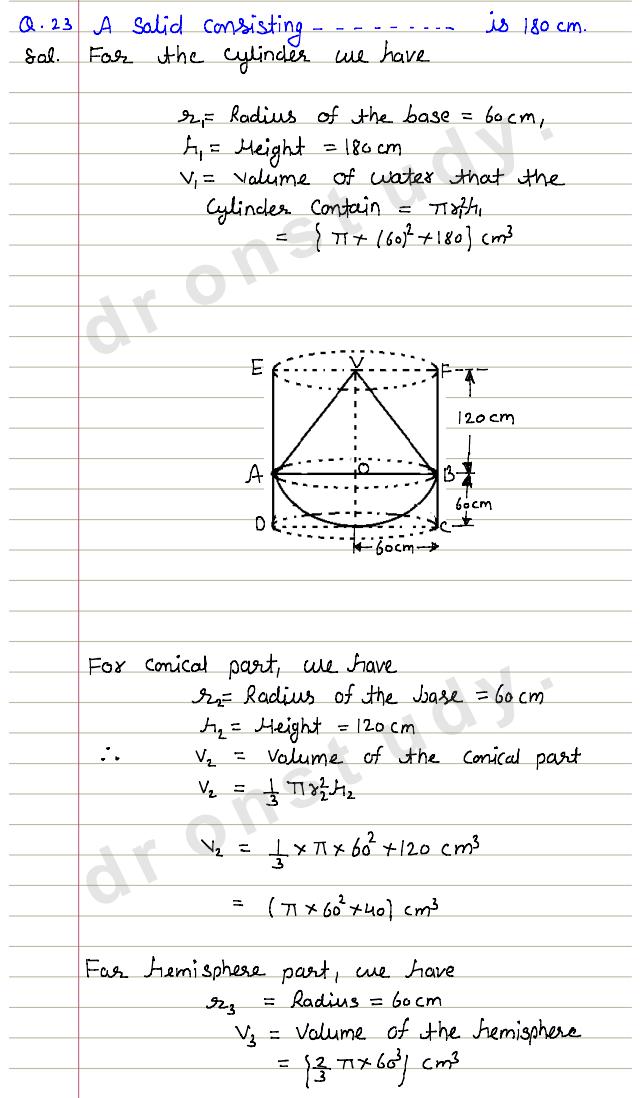 Q.23 A Solid Consisting - - - - - - - - - - is 180 cm.
Sol. For the cylinder we have
r₁= Radius of the base = 60cm,
h₁ = Height = 180 cm
V₁ = Volume of water that the
Cylinder Contain = πr₁²h₁
= { π × (60)² × 180} cm³
dr onstudy.
E V F
120 cm
A O B
60cm
D C
60cm
For Conical part, we have
r₂= Radius of the base = 60 cm
h₂ = Height = 120 cm
∴ V₂ = Volume of the Conical part
V₂ = 1/3 πr₂²h₂
V₂ = 1/3 × π × 60² × 120 cm³
= (π × 60² × 40} cm³
dr onstudy.
For hemisphere part, we have
r₃ = Radius = 60 cm
V₃ = Volume of the hemisphere
= {2/3 π × 60³} cm³